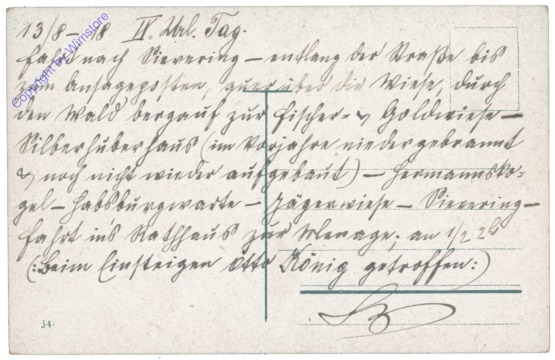 13/8-18 IV. Url. Tag.
Fahrt nach Sievering – entlang der Straße bis
zum Ansageposten, quer über die Wiese, durch
den Wald bergauf zur Fischer- & Goldwiese –
Silberhuberhaus (im Vorjahre niedergebrannt
& noch nicht wieder aufgebaut) – Hermannsko-
gel – Habsburgwarte – Jägerwiese – Sievering –
Fahrt ins Rathaus zur Menage. an 1/2 2h
(: Beim Einsteigen Otto König getroffen :)
34.
Copyright by Wimstore